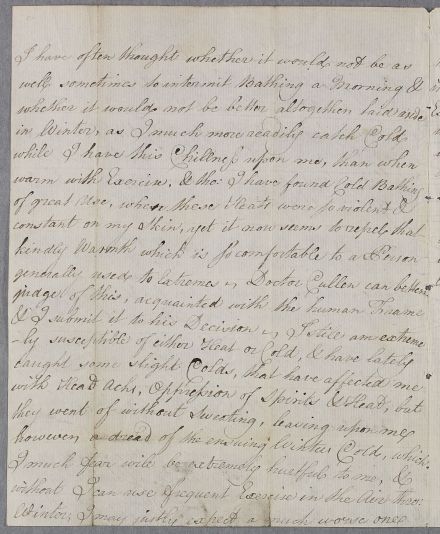 I have often thought whether it would not be as
well sometimes to intermit Bathing a Morning &
whether it would not be better altogether laid aside
in Winter, as I much more readily catch Cold
while I have this Chillness upon me, than when
warm with Exercise, & tho: I have found Cold Bathing
of great Use, where these Heats were so violent &
constant on my Skin, yet it now seems to repels that
kindly Warmth which is so comfortable to a Person
generally used to Extremes, Doctor Cullen can better
judge of this, acquainted with the human Frame
& I submit it to his Decision, I still am extreme
-ly susceptible of either Heat or Cold, & have lately
caught some slight Colds, that have affected me
with Head Achs, Oppression of Spirits & Heat, but
they went of without Sweating, leaving upon me
however a dread of the ensuing Winter Cold, which
I much fear will be extremely hurtful to me, &
without I can use frequent Exercise in the Air thro:
Winter, I may justly expect a much worse one